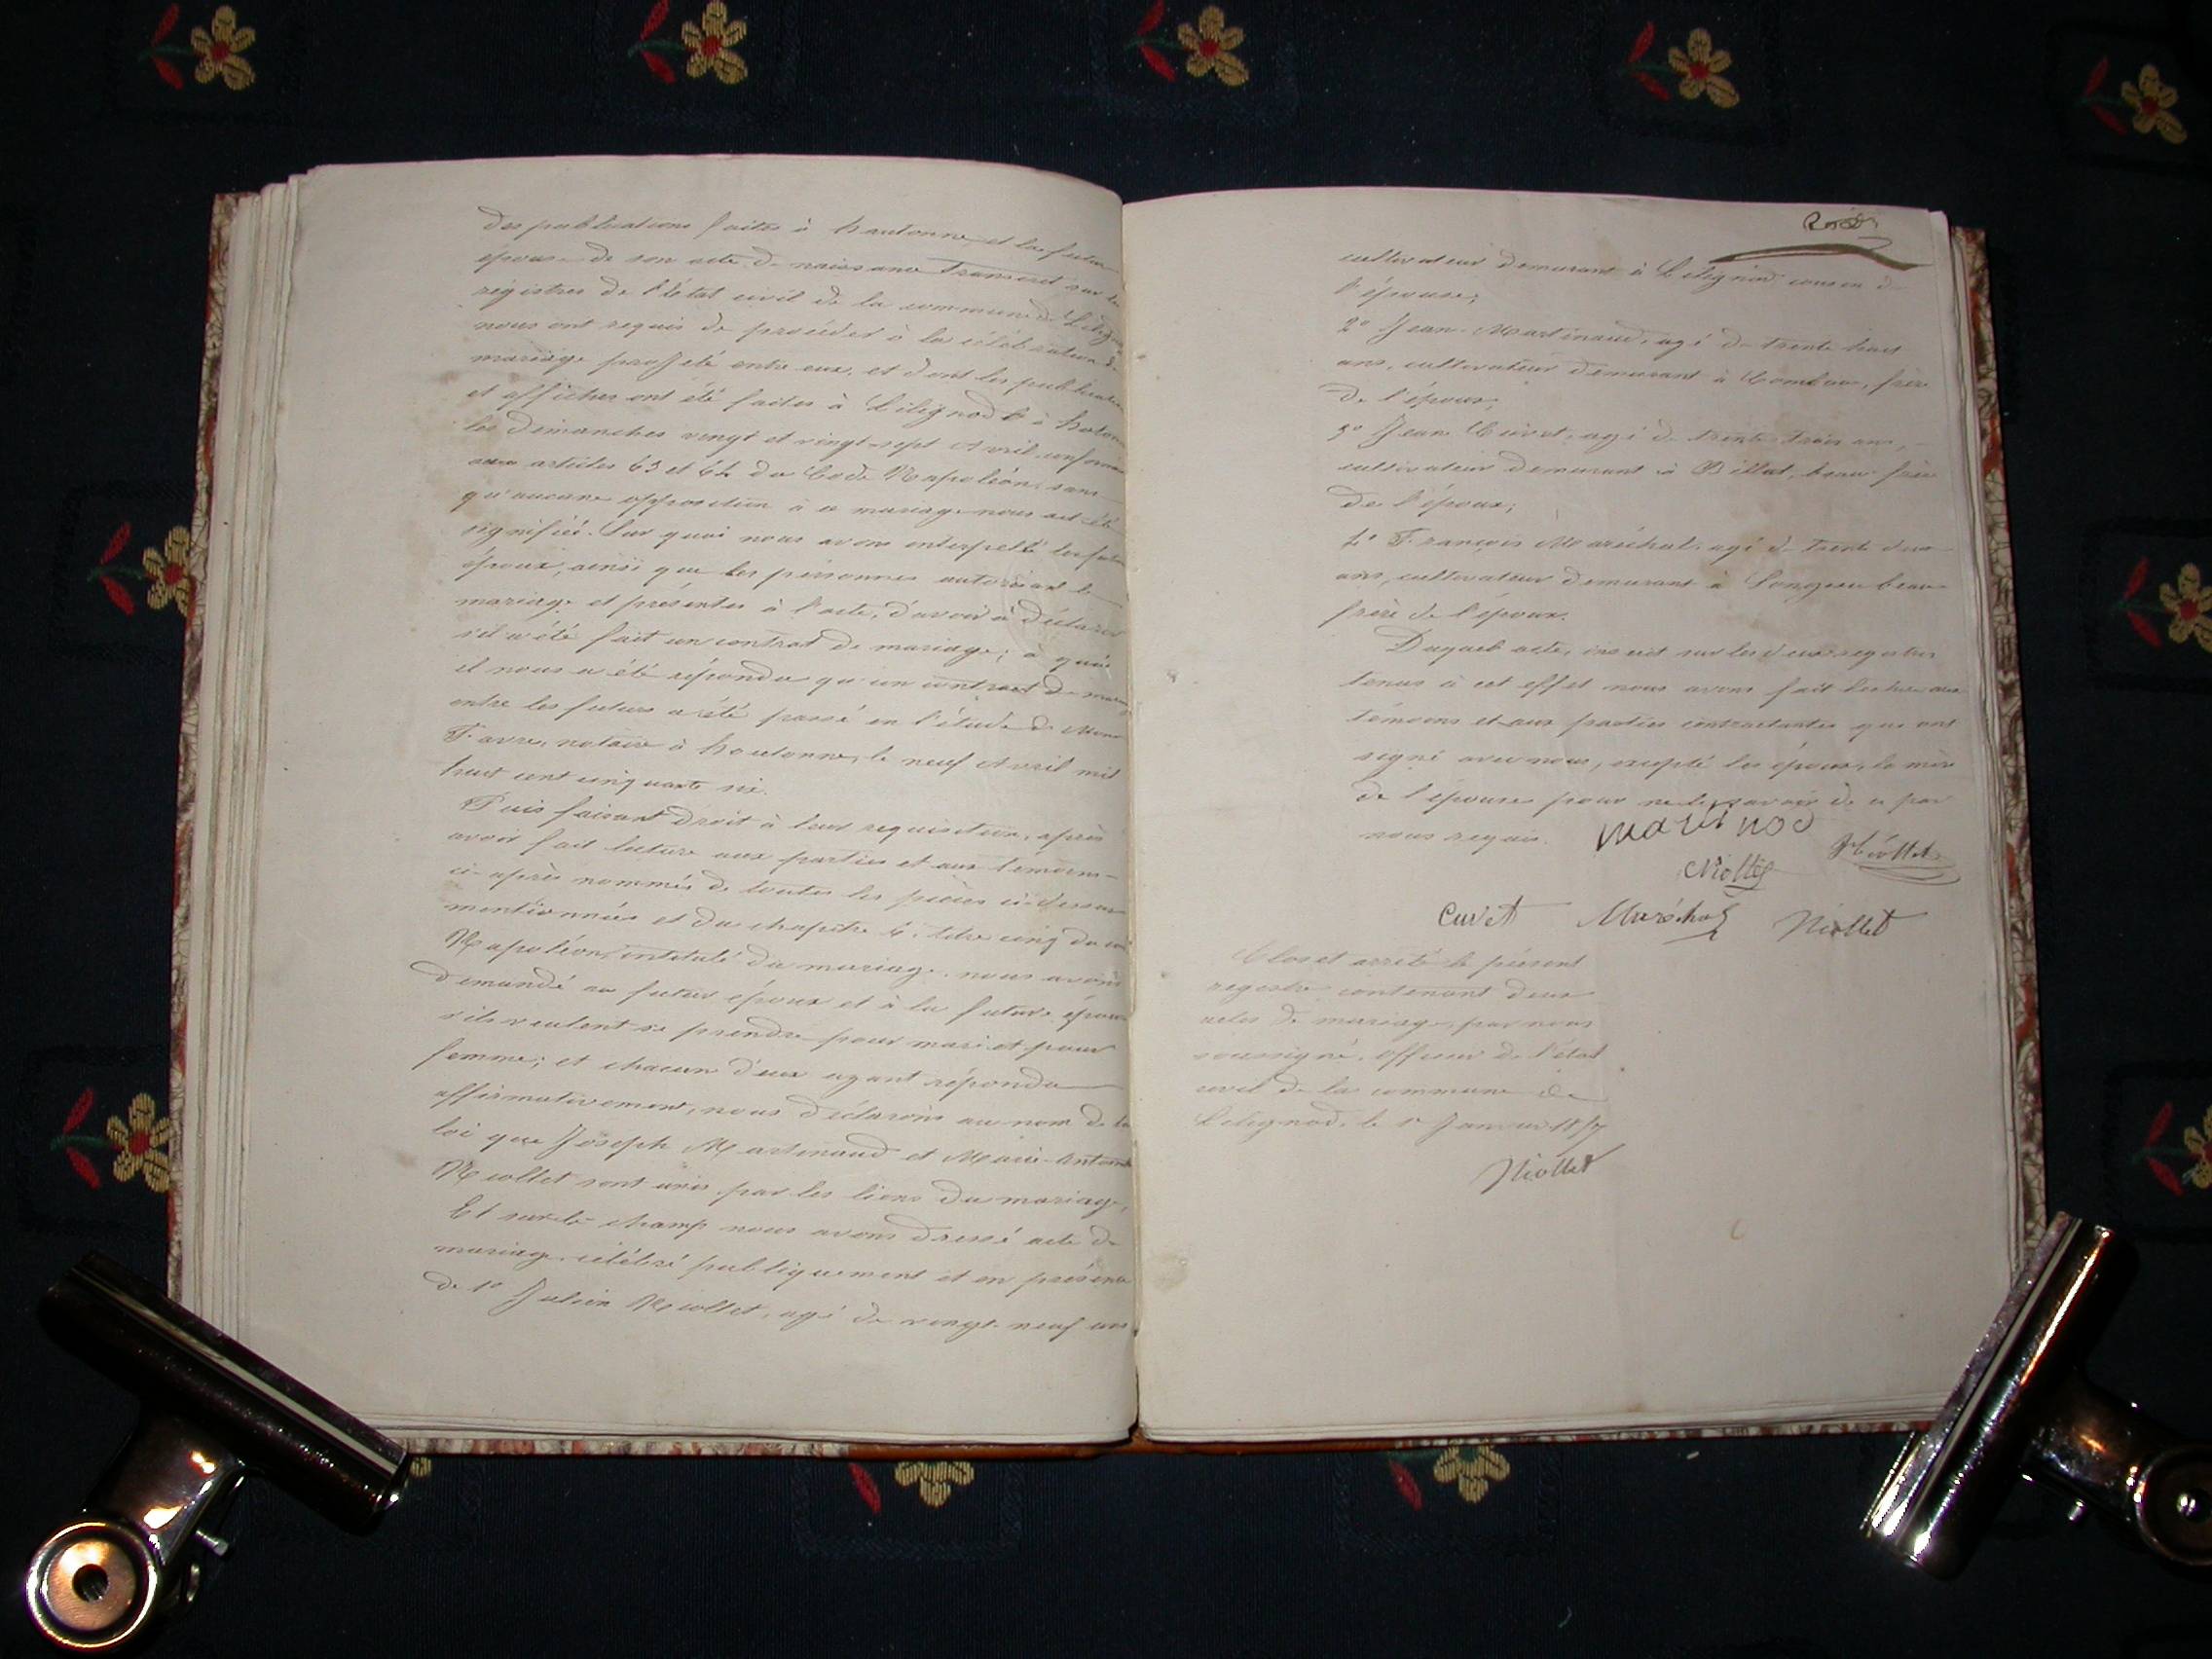 des publications faites à hautonne et la future
épouse de son acte de naissance transcrit sur les
régistres de l'état civil de la commune de Lilignod
nous ont requis de procéder à la célébration du
mariage projeté entre eux, et dont les publications
et affiches ont été faites à Lilignod & à
les dimanches vingt et vingt-sept Avril
aux articles 63 et 64 du Code Napoléon, sans
qu'aucune opposition à ce mariage nous ait été
signifiée. Sur quoi nous avons interpellé les futurs
époux, ainsi que les personnes autorisant le
mariage et présentes à l'acte, d'avoir à déclarer
s'il a été fait un contrat de mariage; à quoi
il nous a été répondu qu'un contract de
entre les futurs a été passé en l'étude de
Favre, notaire à hautonne, le neuf Avril mil
huit cent cinquante six.
Puis faisant droit à leur requisition, après
avoir fait lecture aux parties et aux témoins
ci-après nommés de toutes les pièces ci-dessus
mentionnées et du chapitre 6, titre cinq du
Napoléon, intitulé du mariage, nous avons
demandé au futur époux et à la future épouse
s'ils veulent se prendre pour mari et pour
femme; et chacun d'eux ayant répondu
affirmativement, nous déclarons au nom de la
loi que Joseph Martinaud et Marie-Antoinette
Niollet sont unis par les liens du mariage,
Et sur le champ nous avons dressé acte de
mariage célébré publiquement et en présence
de 1° Julien Niollet, agé de vingt-neuf ans
cultivateur demeurant à Lilignod cousin de
l'épouse;
2° Jean Martinaud, agé de trente huit
ans, cultivateur demeurant à frère
de l'époux;
3° Jean Cuvet, agé de trente trois ans,
cultivateur demeurant à Billat, beau frère
de l'époux;
4° François Maréchal, agé de trente deux
ans, cultivateur demeurant à Songieu beau
frère de l'époux.
Duquel acte, inscrit sur les deux registres
tenus à cet effet nous avons fait lecture aux
témoins et aux parties contractantes qui ont
signé avec nous, excepté les époux, la mère
de l'épouse pour ne le savoir de ce par
nous requis. martinod
Niollet
Cuvet Maréchal Niollet
Clos et arrêté le présent
registre contenant deux
actes de mariage, par nous
soussigné, officier de l'état
civil de la commune de
Lilignod, le 1er Janvier 1857
Niollet